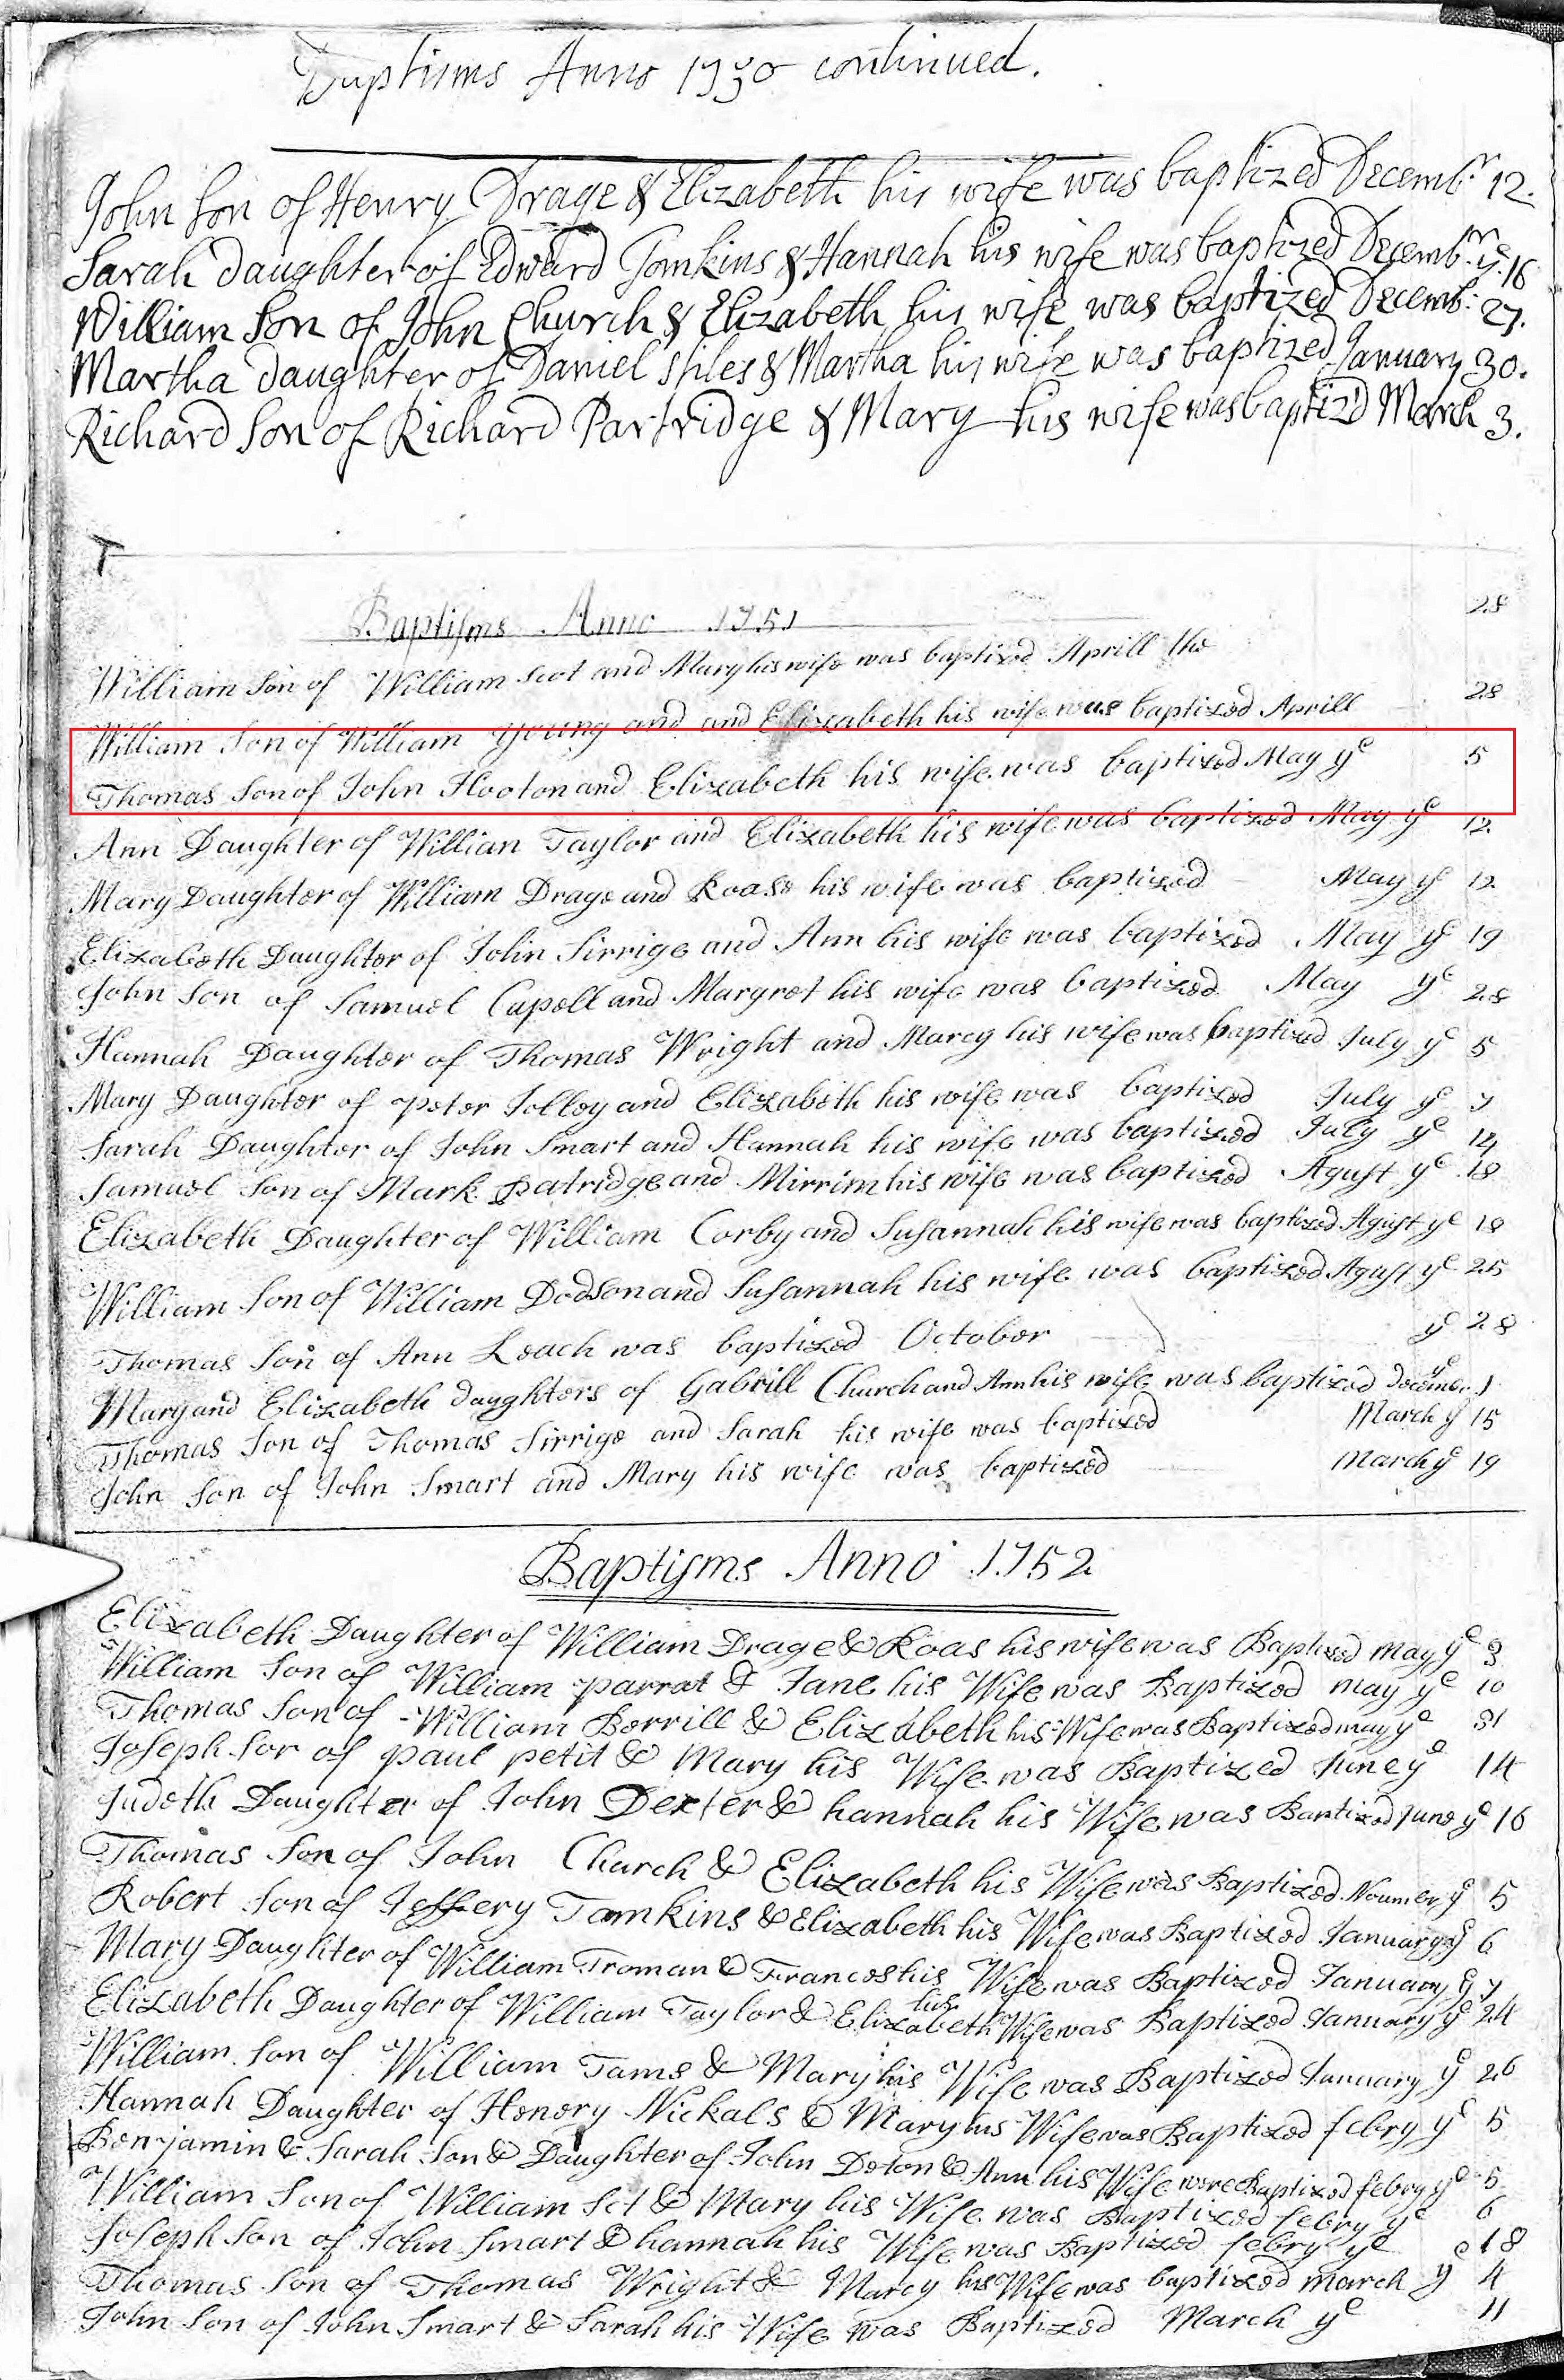 Baptisms Anno 1750 continued.
John Son of Henry Drage & Elizabeth his wife was baptized Decemb.r 12.
Sarah daughter of Edward Tomkins & Hannah his wife was baptized Decemb.r ye. 16
William Son of John Church & Elizabeth his wife was baptized Decemb: 27.
Martha daughter of Daniel Stiles & Martha his wife was baptized January 30.
Richard Son of Richard Partridge & Mary his wife was baptiz'd March 3.
Baptisms Anno 1751
William Son of William Scot and Mary his wife was baptized Aprill the 28
William Son of William Young and and Elizabeth his wife was baptized Aprill 28
Thomas Son of John Hooton and Elizabeth his wife was baptized May ye 5
Ann Daughter of Willian Taylor and Elizabeth his wife was baptized May ye 12
Mary Daughter of William Drage and Roase his wife was baptized May ye 12
Elizabeth Daughter of John Sirrige and Ann his wife was baptized May ye 19
John Son of Samuel Capell and Margret his wife was baptized May ye 28
Hannah Daughter of Thomas Wright and Marcy his wife was baptized July ye 5
Mary Daughter of Peter Jolley and Elizabeth his wife was baptized July ye 7
Sarah Daughter of John Smart and Hannah his wife was baptized July ye 14
Samuel Son of Mark Patridge and Mirrim his wife was baptized Agust ye 18
Elizabeth Daughter of William Corby and Susannah his wife was baptized Agust ye 18
William Son of William Dodson and Susannah his wife was baptized Agust ye 25
Thomas Son of Ann Leach was baptized October ye 28
Mary and Elizabeth daughters of Gabrill Church and Ann his wife was baptized Decemer ye 1
Thomas Son of Thomas Sirrige and Sarah his wife was baptized March ye 15
John Son of John Smart and Mary his wife was baptized March ye 19
Baptisms Anno 1752
Elizabeth Daughter of William Drage & Roas his wife was Baptized may ye 3
William Son of William parrat & Jane his Wife was Baptized may ye 10
Thomas Son of William Borrill & Elizabeth his Wife was Baptized may ye 31
Joseph Son of paul petit & Mary his Wife was Baptized June ye 14
Judeth Daughter of John Dexter & hannah his Wife was Baptized June ye 16
Thomas Son of John Church & Elizabeth his Wife was Baptized Noumer ye 5
Robert Son of Jeffery Tomkins & Elizabeth his Wife was Baptized January ye 6
Mary Daughter of William Troman & Frances his Wife was Baptized January ye 7
Elizabeth Daughter of William Taylor & Elizabeth his Wife was Baptized January ye 24
William Son of William Tams & Mary his Wife was Baptized January ye 26
Hannah Daughter of Henory Nickals & Mary his Wife was Baptized febry ye 5
Benjamin & Sarah Son & Daughter of John Deton & Ann his Wife were Baptized febry ye 5
William Son of William Sct & Mary his Wife was Baptized febry ye 6
Joseph Son of John Smart & hannah his Wife was Baptized febry ye 18
Thomas Son of Thomas Wright & Marcy his Wife was baptized march ye 4
John Son of John Smart & Sarah his Wife was Baptized March ye 11